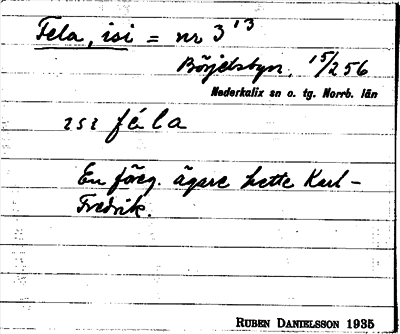 Fela, isi = nr 3¹³
Börjelsbyn, 15/2 56
Nederkalix sn o. tg. Norrb. län
ɪsɪ féla
En föreg. ägare hette Karl-
Fredrik.
RUBEN DANIELSSON 1935